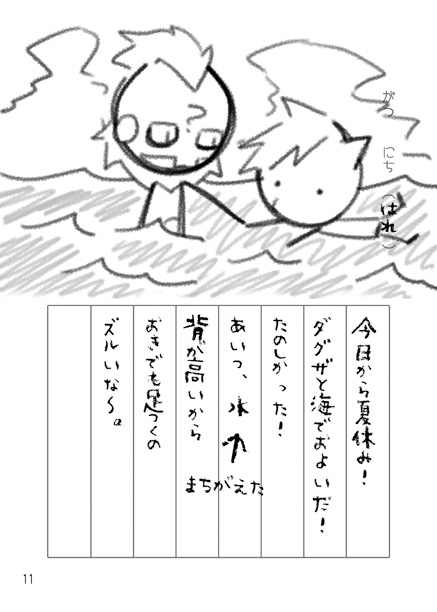 がつ にち (はれ)
今日から夏休み!
ダグザと海でおよいだ!
たのしかった!
あいつ、水↑
まちがえた
背が高いから
おきでも足つくの
ズルいな〜。
11